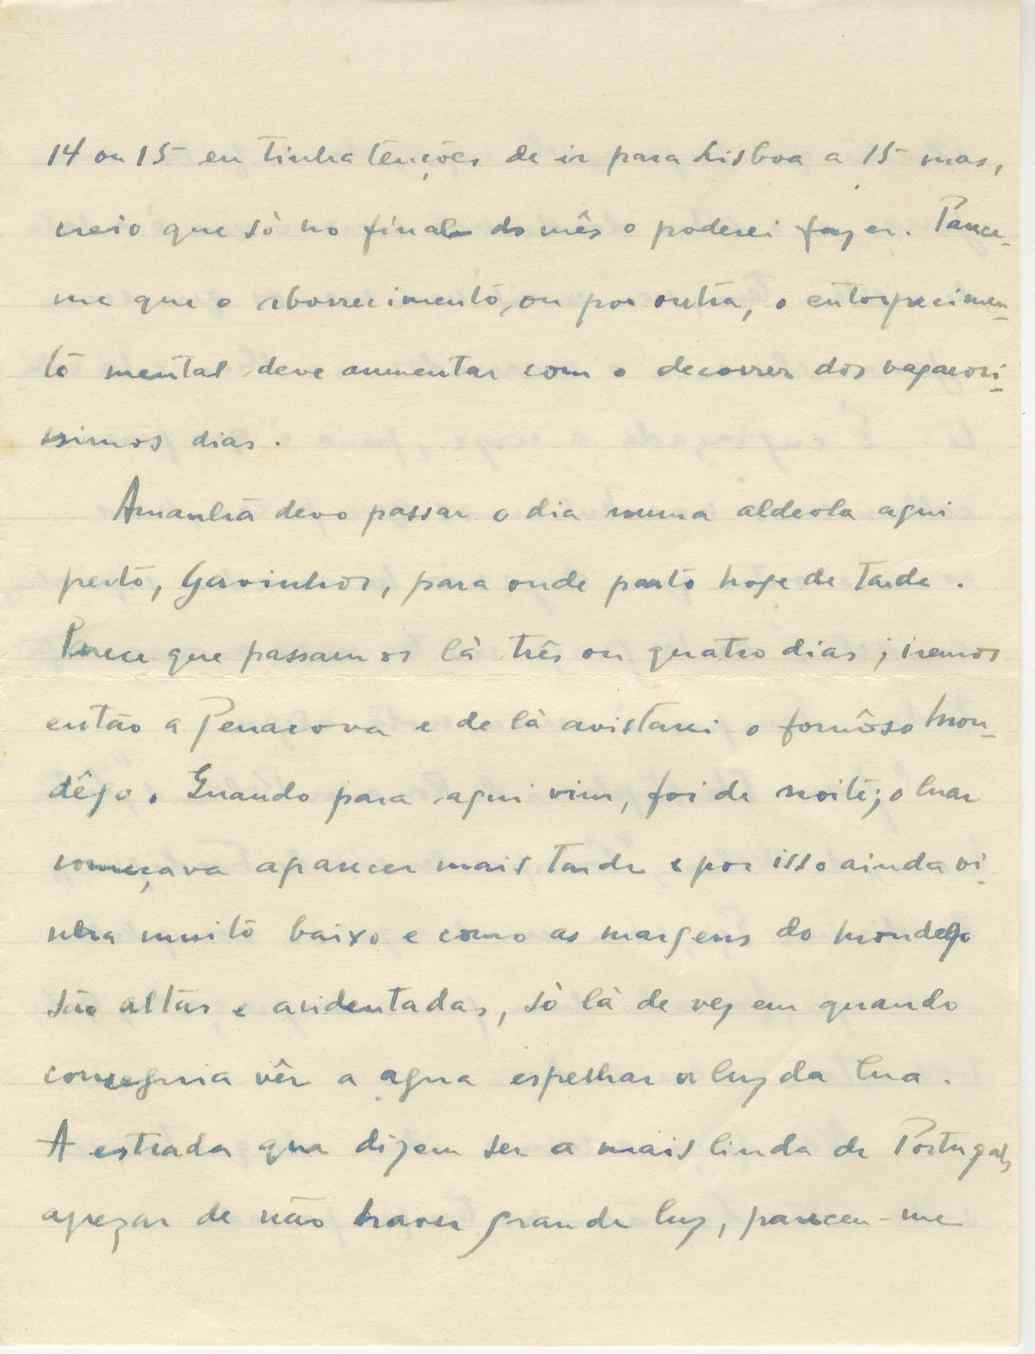 14 ou 15 eu tinha tenções de ir para Lisboa a 15 mas,
creio que só no final do mês o poderei fazer. Parece-
me que o aborrecimento, ou por outra, o entorpecimen-
to mental deve aumentar com o decorrer dos vagarosi-
ssimos dias.
Amanhã devo passar o dia numa aldeola aqui
perto, Gavinhos, para onde parto hoje de tarde.
Parece que passamos lá três ou quatro dias; iremos
então a Penacova e de lá avistarei o formôso Mon-
dêgo. Quando para aqui vim, foi de noite; o luar
começava aparecer mais tarde e por isso ainda vi-
nha muito baixo e como as margens do Mondego
são altas e acidentadas, só lá de vez em quando
conseguia vêr a agua espelhar a luz da lua.
A estrada que dizem ser a mais linda de Portugal,
apezar de não haver grande luz, pareceu-me